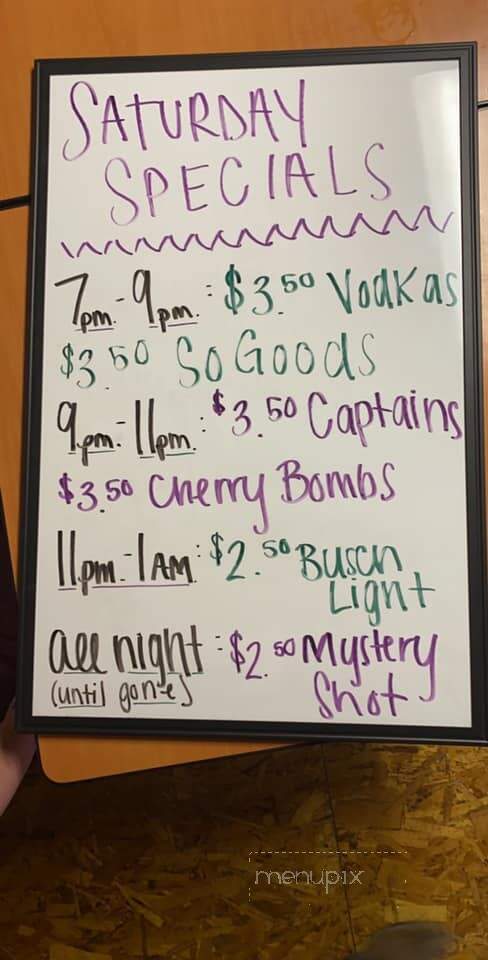 SATURDAY
SPECIALS
7pm-9pm: $3.50 Vodkas
$3.50 SoGoods
9pm-11pm: $3.50 Captains
$3.50 Cherry Bombs
11pm-1AM: $2.50 Busch
Light
all night: $2.50 Mystery
(until gone) Shot
menupix